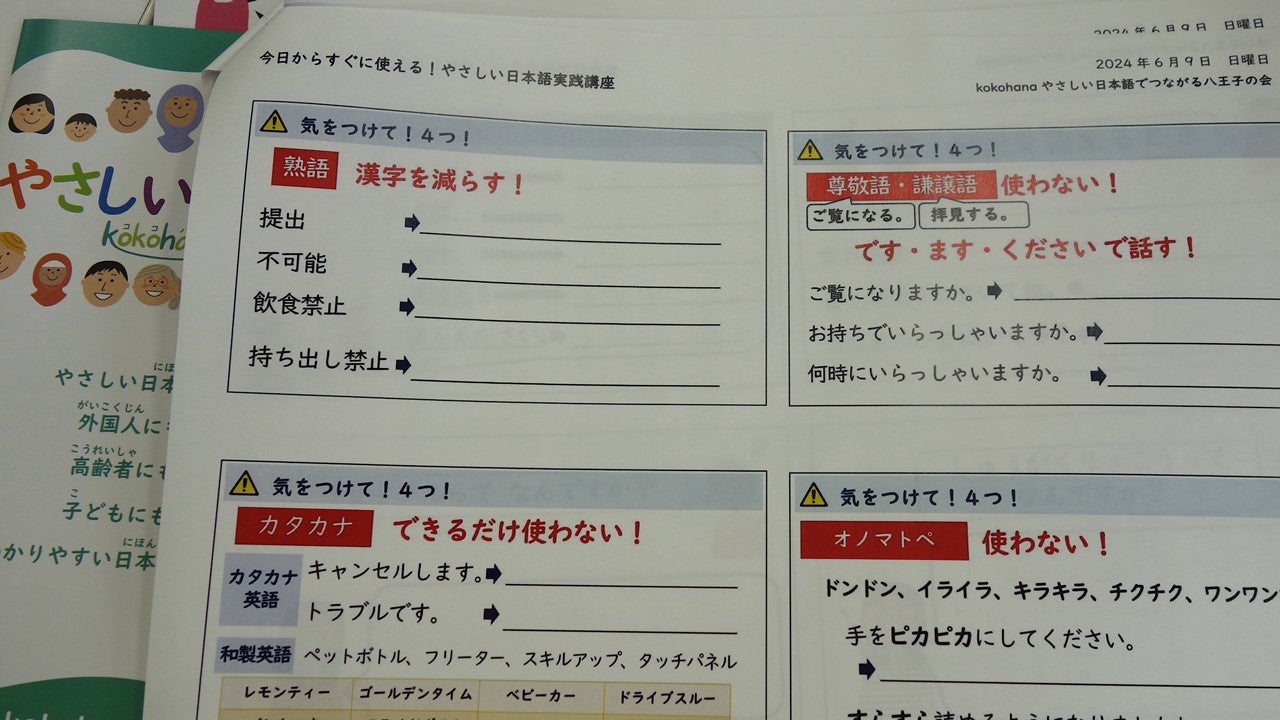 やさしい
にほ
やさしい日本
がいこくじん
外国人に
こうれいしゃ
高齢者にも
こ
子どもにも
にほん
かりやすい日本
今日からすぐに使える！やさしい日本語実践講座
2024 年 6 月 9 日 日曜日
2024 年 6 月 9 日 日曜日
kokohana やさしい日本語でつながる八王子の会
気をつけて！４つ！
熟語 漢字を減らす！
提出
不可能
飲食禁止
持ち出し禁止
気をつけて！４つ！
尊敬語・謙譲語 使わない！
ご覧になる。 拝見する。
です・ます・ください で話す！
ご覧になりますか。
お持ちでいらっしゃいますか。
何時にいらっしゃいますか。
気をつけて！４つ！
カタカナ できるだけ使わない！
カタカナ英語 キャンセルします。
トラブルです。
和製英語 ペットボトル、フリーター、スキルアップ、タッチパネル
レモンティー ゴールデンタイム ベビーカー ドライブスルー
気をつけて！４つ！
オノマトペ 使わない！
ドンドン、イライラ、キラキラ、チクチク、ワンワン
手をピカピカにしてください。